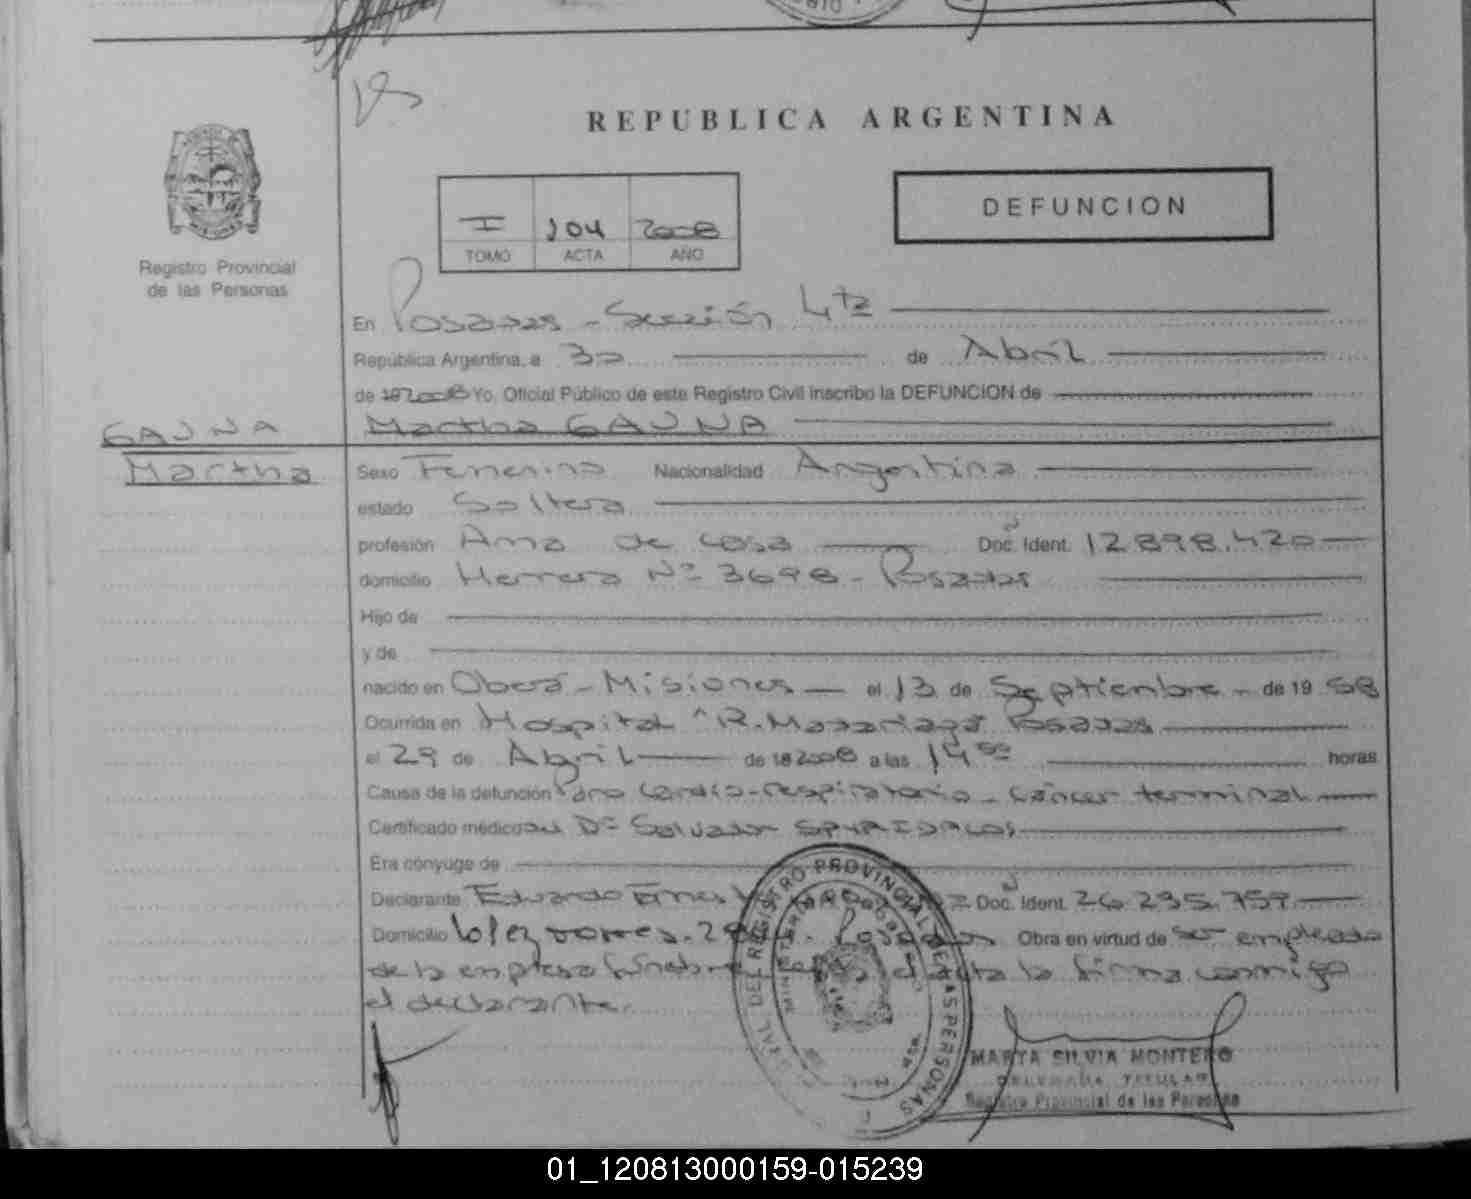 REPUBLICA ARGENTINA
I 104 2008
TOMO ACTA AÑO
DEFUNCION
Registro Provincial
de las Personas
En Posadas - Sección 4ta
República Argentina, a 30 de Abril
de 192008 Yo, Oficial Público de este Registro Civil inscribo la DEFUNCION de
GAUNA
Martha
Martha GAUNA
Sexo Femenino Nacionalidad Argentina
estado Soltera
profesión Ama de casa Doc. Ident. 12.898.420
domicilio Herrera Nº 3698 - Posadas
Hijo de
y de
nacido en Oberá - Misiones el 13 de Septiembre - de 19 58
Ocurrida en Hospital "R. Madariaga" Posadas
el 29 de Abril de 192008 a las 14 50 horas
Causa de la defunción Paro Cardio-respiratorio - Cáncer terminal
Certificado médico del Dr Salvador SPYRIDALOS
Era cónyuge de
Declarante Eduardo Doc. Ident. 26.235.759
Domicilio López torres. Posadas Obra en virtud de ser empleado
de la empresa fúnebre acta la firma conmigo
el declarante.
DEL REGISTRO PROVINCIAL DE LAS PERSONAS
MARTA SILVIA MONTERO
DELEGADA TITULAR
Registro Provincial de las Personas
01_120813000159-015239